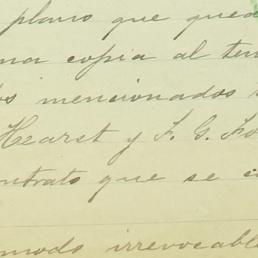 plano que que
na copia al
os mencionados
Hearst y F. G.
ntrato que se
modo irrevocabl